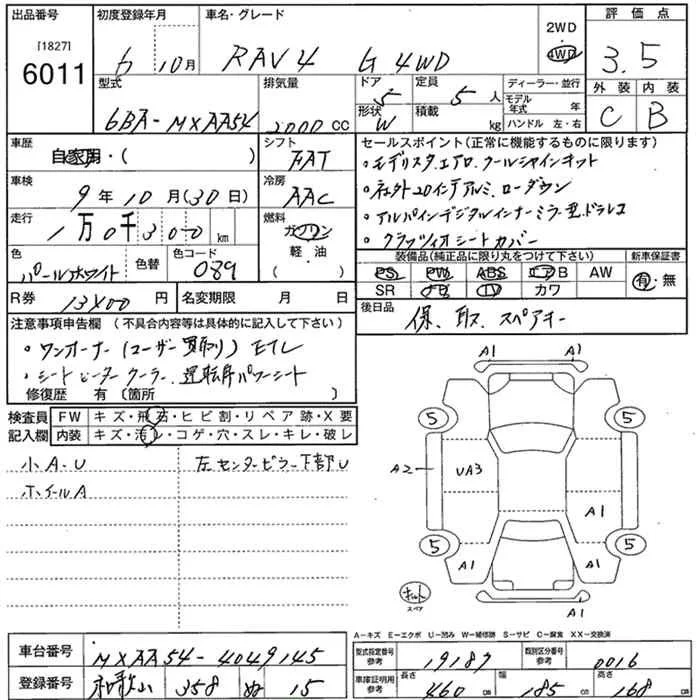 出品番号
[1827]
6011
初度登録年月
6 10月
車名・グレード
RAV4 G 4WD
2WD
4WD
評価点
3.5
外装 内装
C B
型式
6BA-MXAA54
排気量
2000 CC
ドア
5
形状
W
定員
5 人
積載
kg
ディーラー・並行
モデル年式 年
ハンドル 左・右
車歴
自家用・( )
シフト
FAT
車検
9年10月(30日)
冷房
AAC
走行
1万0千300 km
燃料
ガソリン
軽油
( )
色
パールホワイト
色替
色コード
089
R券
13400 円
名変期限 月 日
セールスポイント(正常に機能するものに限ります)
・モデリスタエアロ.クールシャインキット
・社外20インチアルミ.ローダウン
・アルパインデジタルインナーミラー型ドラレコ
・クラッツィオシートカバー
装備品(純正品に限り丸をつけて下さい)
PS PW ABS エアB AW
SR ナビ TV カワ
新車保証書
有・無
後日品
保、取、スペアキー
注意事項申告欄(不具合内容等は具体的に記入して下さい)
・ワンオーナー(ユーザー買取り) ETC
・シートヒーター クーラー.運転席パワーシート
修復歴 有(箇所 )
検査員記入欄
FW キズ・飛石・ヒビ割・リペア跡・X要
内装 キズ・汚レ・コゲ・穴・スレ・キレ・破レ
小A・U
ホイールA
左センターピラー下部U
A1 A1
5 5
A2
UA3
A1
5 5
A1 A1
キット
スペア
A1
A-キズ E-エクボ U-凹み W-補修跡 S-サビ C-腐食 XX-交換済
車台番号
MXAA54-4049145
登録番号
和歌山 358 ぬ 15
型式指定番号参考
19187
類別区分番号参考
0016
車庫証明用参考
長さ 460 cm
幅 185 cm
高さ 168 cm